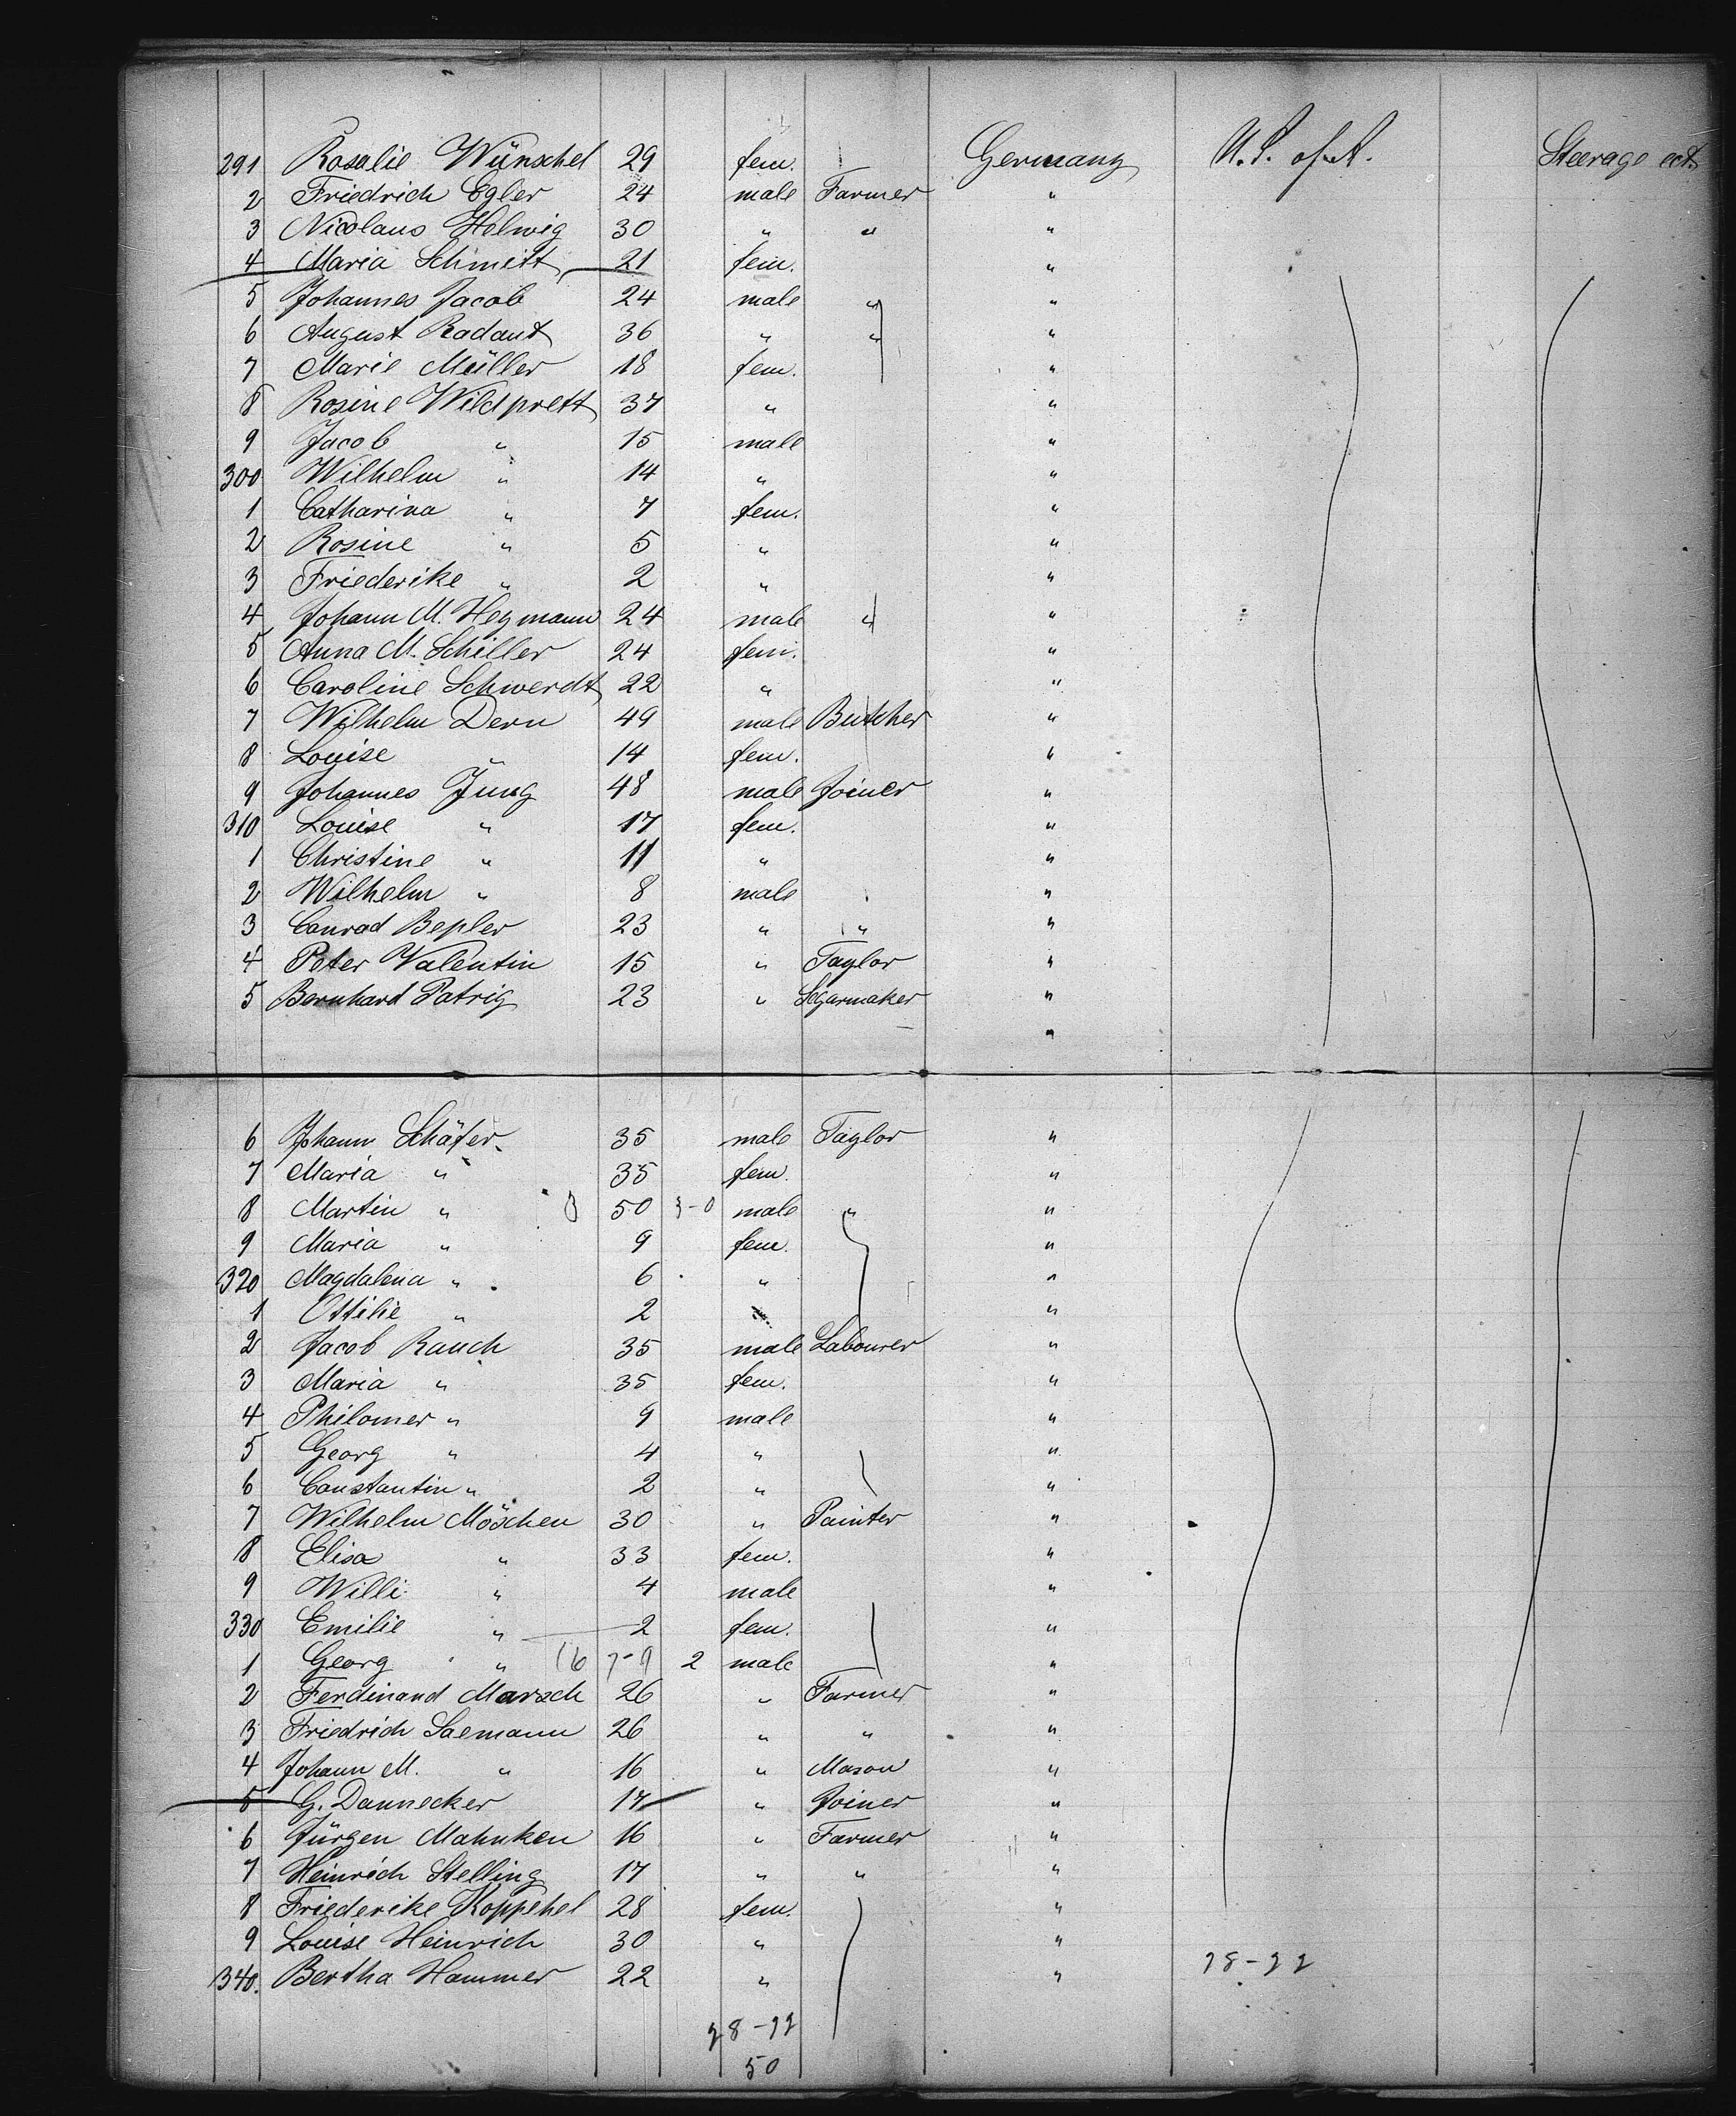 291 Rosalie Wünschel 29 fem. Germany U.S. of A. Steerage ect.
2 Friedrich Egler 24 male Farmer "
3 Nicolaus Helwig 30 " " "
4 Maria Schmitt 21 fem. "
5 Johannes Jacob 24 male " "
6 August Radant 36 " " "
7 Marie Müller 18 fem. "
8 Rosine Wildprett 37 " "
9 Jacob " 15 male "
300 Wilhelm " 14 " "
1 Catharina " 7 fem. "
2 Rosine " 5 " "
3 Friederike " 2 " "
4 Johann M. Hegmann 24 male " "
5 Anna M. Schiller 24 fem. "
6 Caroline Schwerdt 22 " "
7 Wilhelm Dern 49 male Butcher "
8 Louise " 14 fem. "
9 Johannes Jung 48 male Joiner "
310 Louise " 17 fem. "
1 Christine " 11 " "
2 Wilhelm " 8 male "
3 Conrad Bepler 23 " " "
4 Peter Valentin 15 " Taylor "
5 Bernhard Patrig 23 " Segarmaker "
"
6 Johann Schäfer 35 male Taylor "
7 Maria " 35 fem. "
8 Martin " 50 3-0 male " "
9 Maria " 9 fem. "
320 Magdalena " 6 " "
1 Ottilie " 2 " "
2 Jacob Rauch 35 male Labourer "
3 Maria " 35 fem. "
4 Philomer " 9 male "
5 Georg " 4 " "
6 Constantin " 2 " "
7 Wilhelm Möschen 30 " Painter "
8 Elisa " 33 fem. "
9 Willi " 4 male "
330 Emilie " 2 fem. "
1 Georg " 2 male "
2 Ferdinand Marsch 26 " Farmer "
3 Friedrich Saemann 26 " " "
4 Johann M. " 16 " Mason "
5 G. Dannecker 17 " Joiner "
6 Jürgen Mahnken 16 " Farmer "
7 Heinrich Stelling 17 " " "
8 Friederike Koppehel 28 fem. "
9 Louise Heinrich 30 " "
340. Bertha Hammer 22 " "
50